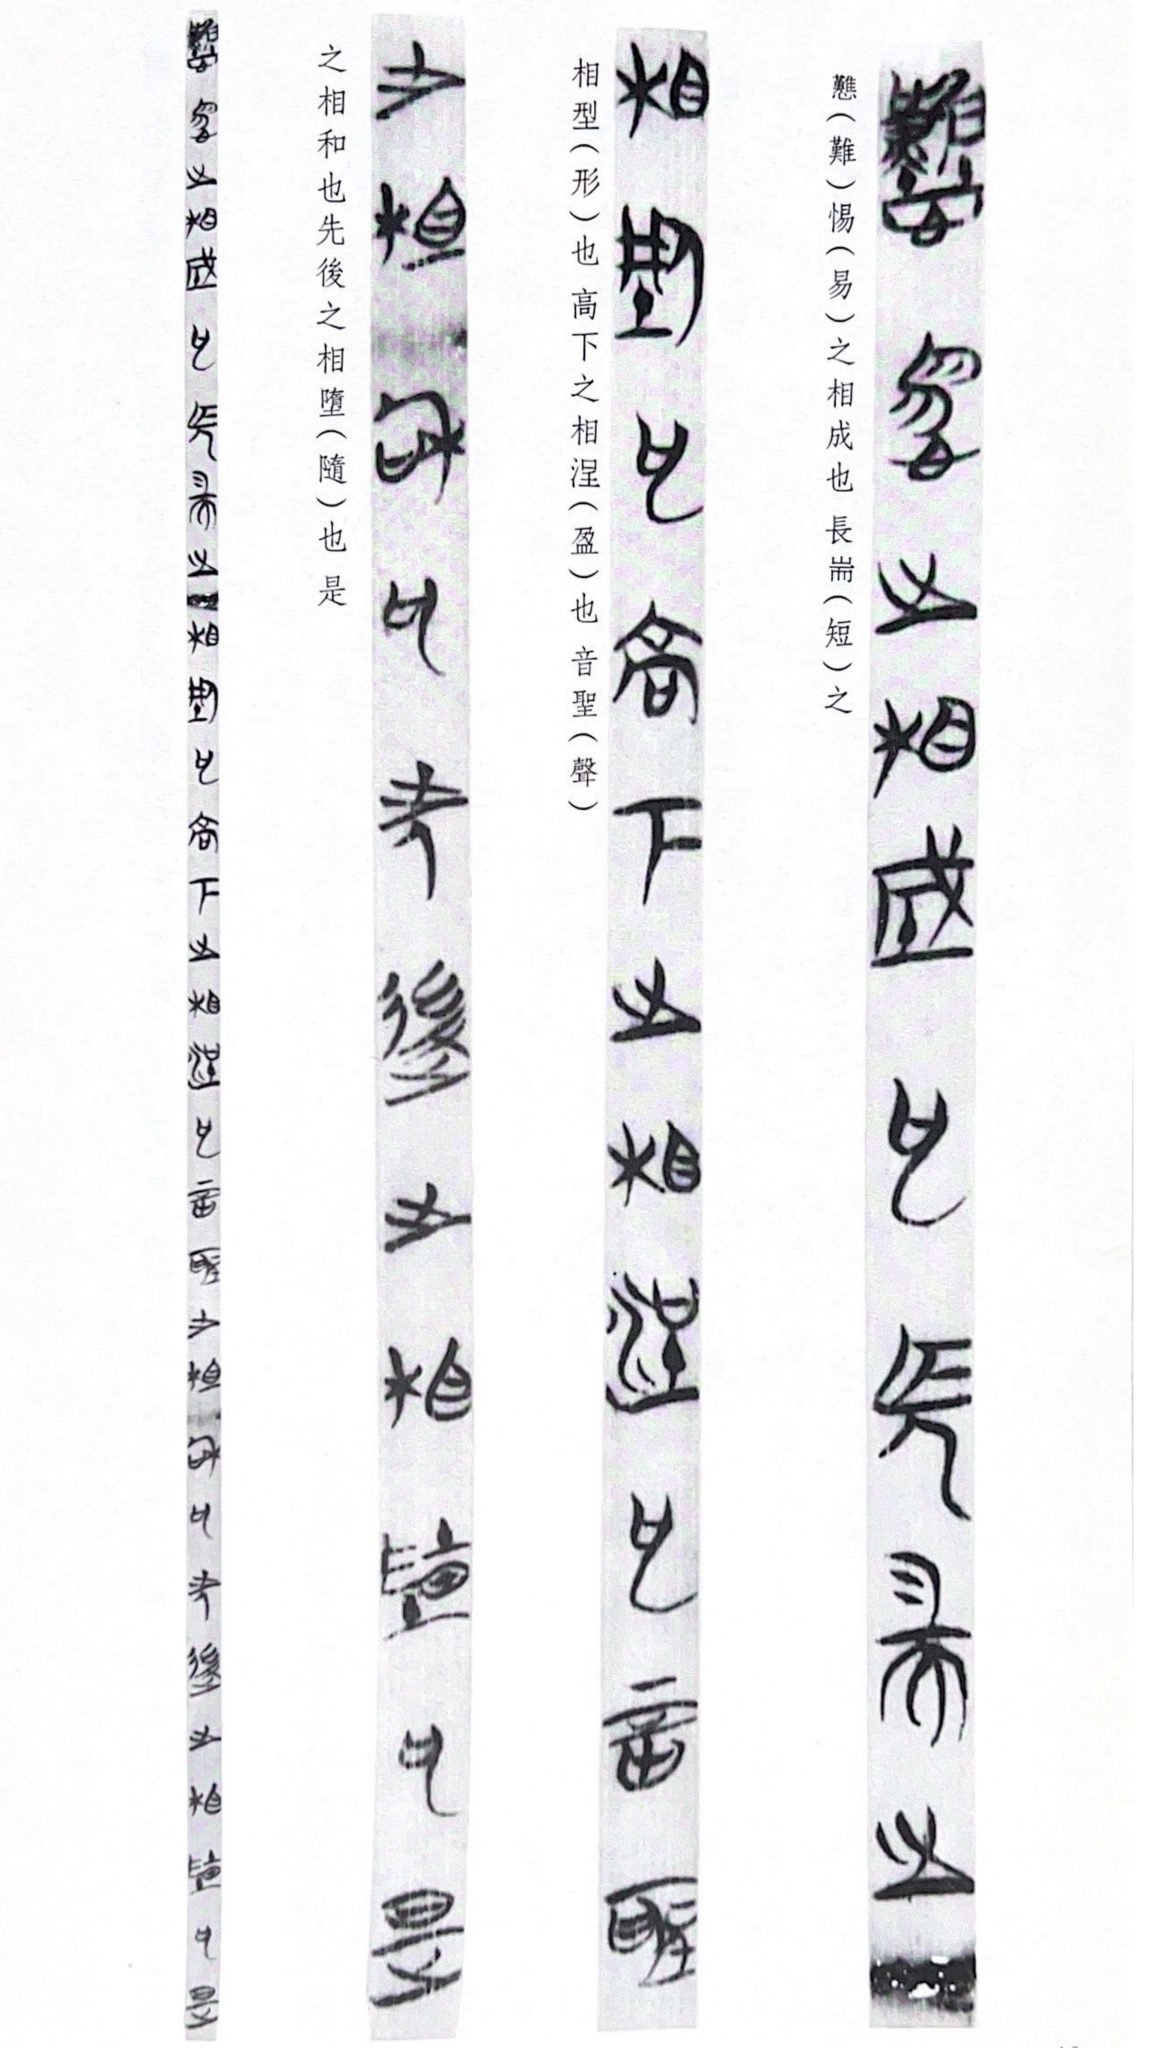 戁(難)惕(易)之相成也 長耑(短)之
相型(形)也 高下之相涅(盈)也 音聖(聲)
之相和也先後之相墮(隨)也 是